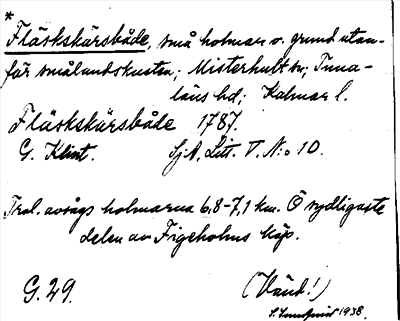 *
Fläskskärsbåde, små holmar o. grund utan-
för smålandskusten; Misterhult sn; Tuna-
läns hd; Kalmar l.
Fläskskärsbåde 1787.
G. Klint. Sj.A. Litt. V. N:o 10.
Trol. avsågs holmarna 6,8-7,1 km. Ö sydligaste
delen av Figeholms köp.
G. 29. (Vänd!)
1938.